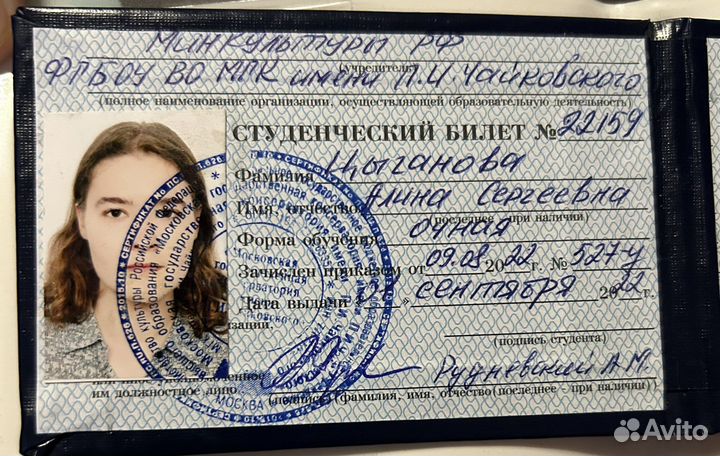 Минкультуры РФ
(учредитель)
ФГБОУ ВО МГК имени П.И. Чайковского
(полное наименование организации, осуществляющей образовательную деятельность)
СТУДЕНЧЕСКИЙ БИЛЕТ № 22159
Фамилия Цыганова
Имя, отчество Алина Сергеевна
(последнее - при наличии)
Форма обучения очная
Зачислен приказом от 09.08 2022 г. № 527-у
Дата выдачи сентября 2022 г.
(подпись студента)
Рудневский А.М.
им должностное лицо (подпись) (фамилия, имя, отчество (последнее - при наличии))
МОСКВА
Avito